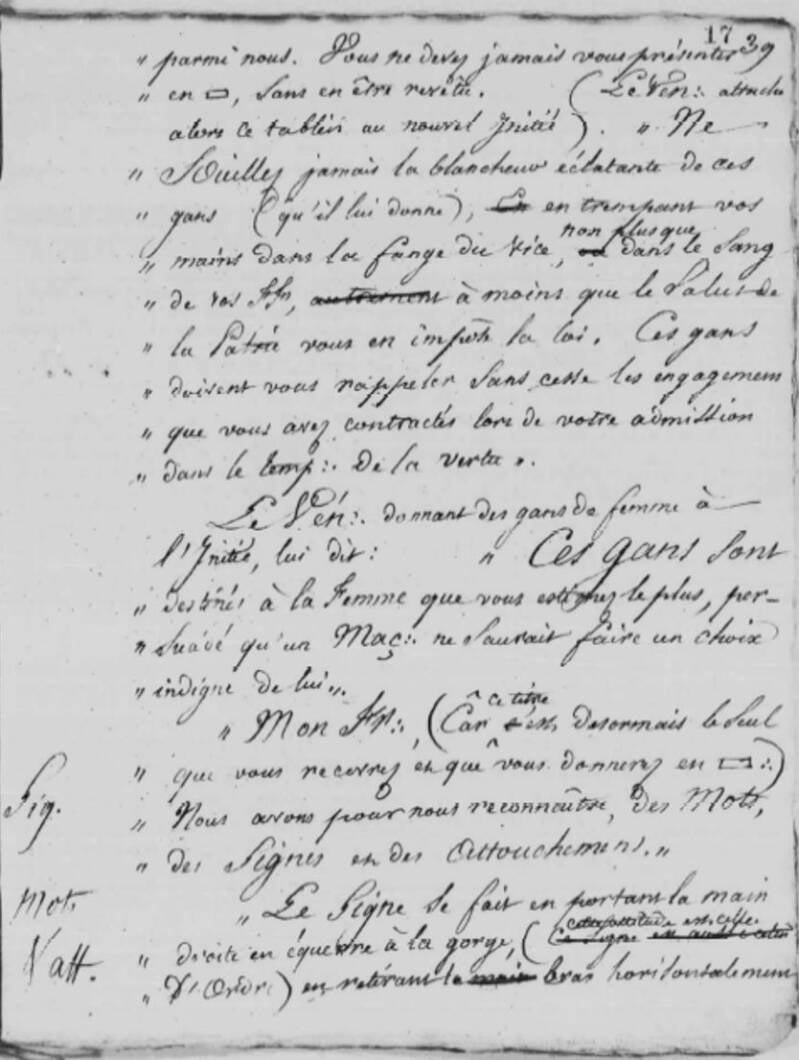 17 39
" parmi nous. Vous ne devez jamais vous présenter
" en ▭, sans en être revêtu. (Le Vén∴ attache
alors ce tablier au nouvel Initié). " Ne
" Souillez jamais la blancheur éclatante de ces
" gans (qu'il lui donne), en trempant vos
non plus que
" mains dans la fange du vice, dans le Sang
" de vos ff., autrement à moins que le Salut de
" la Patrie vous en impose la loi. Ces gans
" doivent vous rappeler sans cesse les engagemens
" que vous avez contractés lors de votre admission
" dans le temp∴ de la vertu ".
Le Vén∴ donnant des gans de femme à
l'Initié, lui dit : " Ces gans sont
" destinés à la Femme que vous estimez le plus, per-
" suadé qu'un Maç∴ ne Saurait faire un choix
" indigne de lui ".
ce titre
" Mon ff∴, (Car est désormais le Seul
" que vous recevrez et que vous donnerez en ▭∴)
Sig.
" Nous avons pour nous reconnaître, des Mots,
" des Signes et des attouchemens. "
Mots
" Le Signe se fait en portant la main
cette attitude est celle
Vatt.
" droite en équerre à la gorge, (Ce Signe est aussi celui
" d'Ordre) en retirant le main bras horisontalement